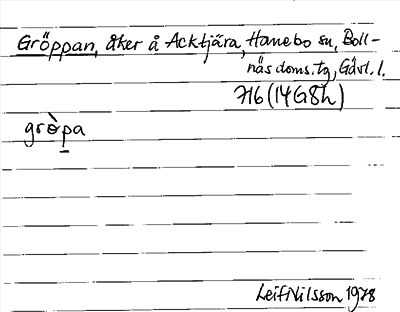 Gröppan, åker å Acktjära, Hanebo sn, Boll-
näs doms. tg, Gävl. l.
716 (14G8h)
grò̈pa
Leif Nilsson 1978